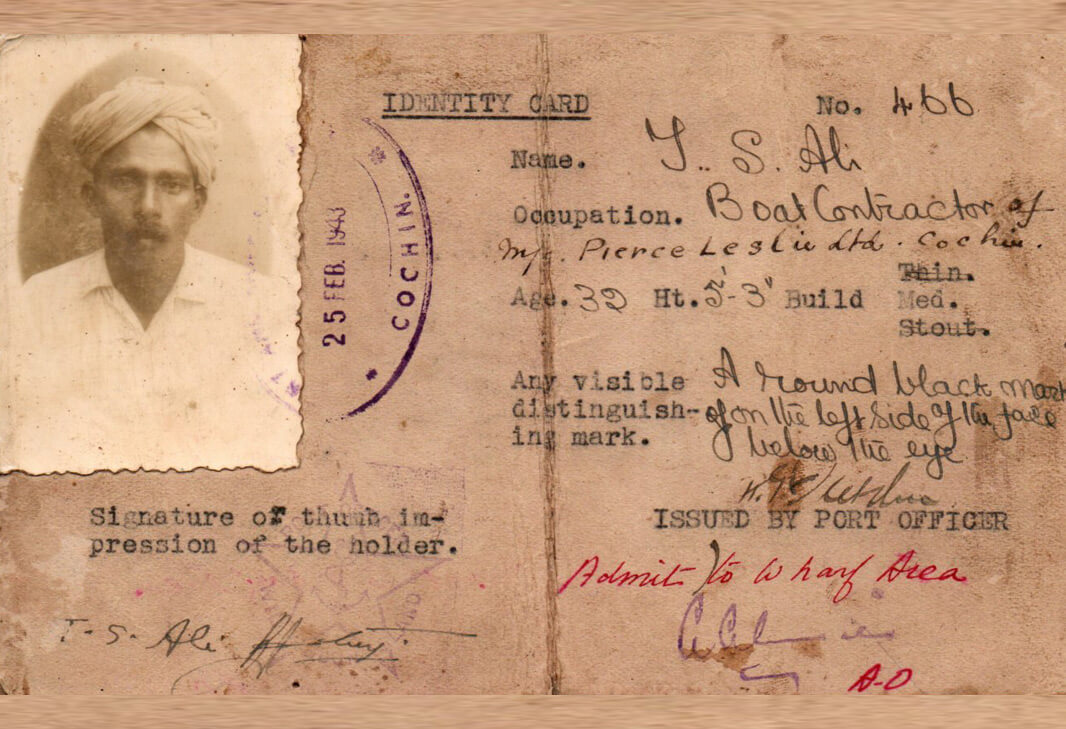 IDENTITY CARD
No. 466
Name. T. S. Ali
Occupation. Boat Contractor of
M/s. Pierce Leslie Ltd. Cochin.
Thin.
Age. 32 Ht. 5'-3" Build Med.
Stout.
Any visible A round black mark
distinguish- on the left side of the face
ing mark. below the eye
ISSUED BY PORT OFFICER
Admit to Wharf Area
A-O
25 FEB. 1943
COCHIN.
Signature or thumb im-
pression of the holder.
T. S. Ali